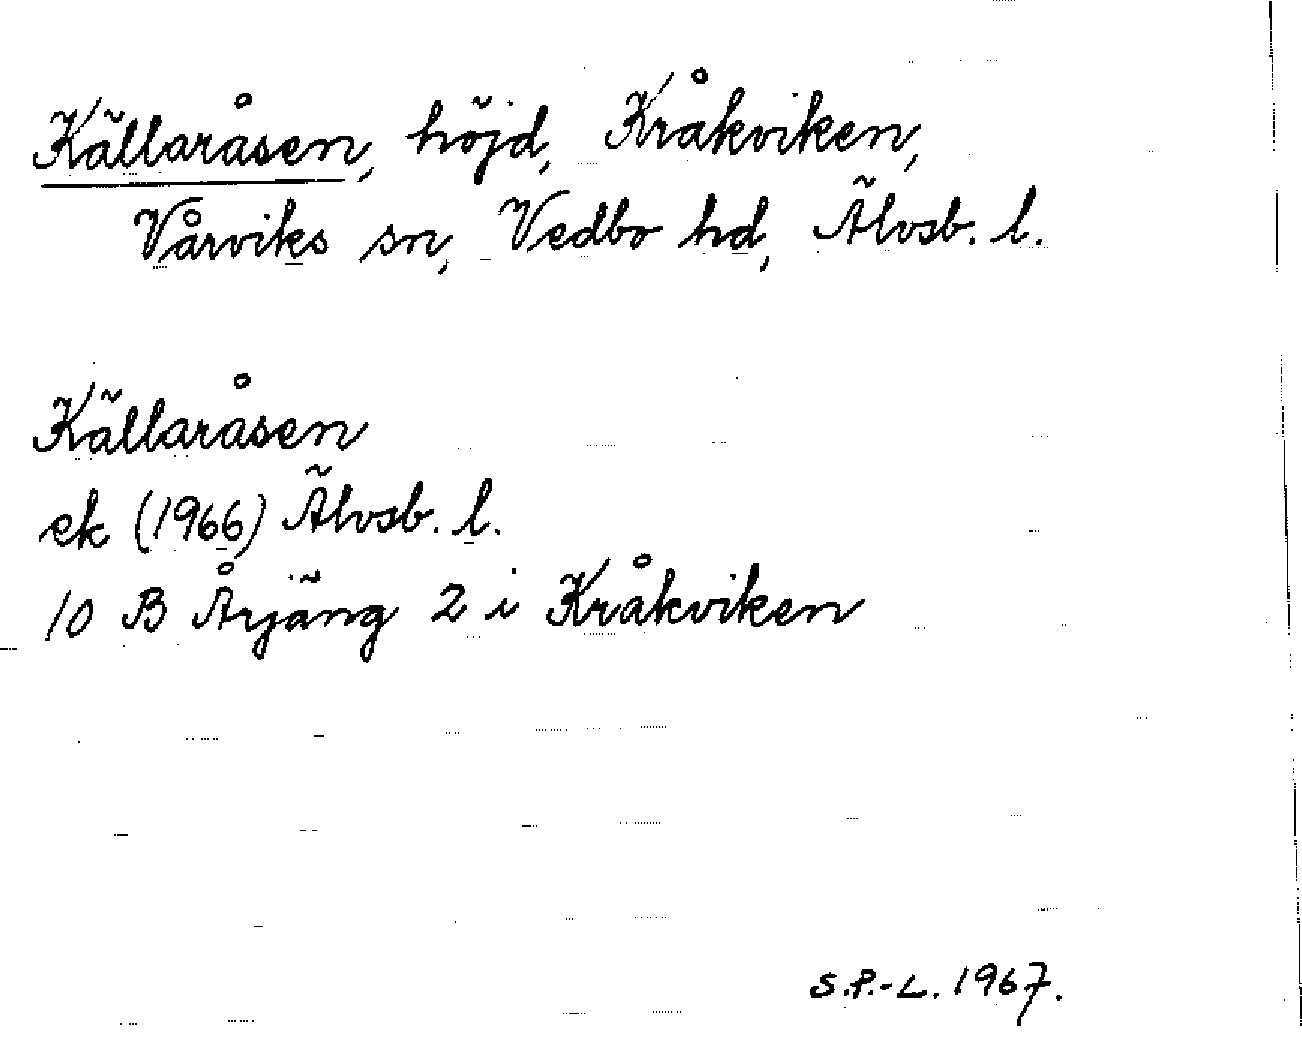 Källaråsen, höjd, Kråkviken,
Vårviks sn, Vedbo hd, Älvsb. l.
Källaråsen
ek (1966) Älvsb. l.
10 B Årjäng 2 i Kråkviken
S.P.-L. 1967.